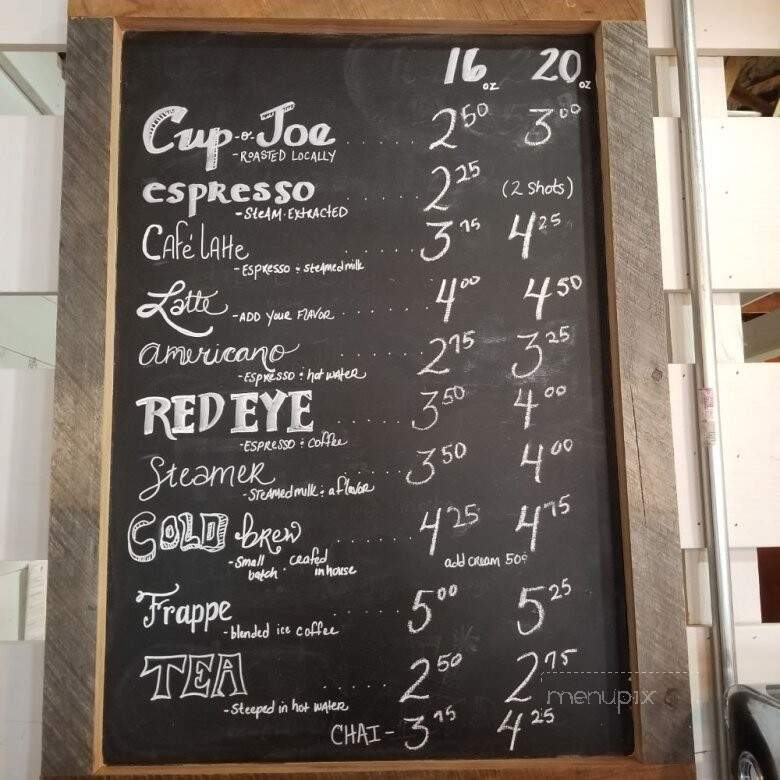 16 oz 20 oz
Cup-o-Joe ...... 2.50 3.00
-Roasted Locally
espresso ...... 2.25 (2 shots)
-Steam Extracted
Café latte ...... 3.75 4.25
-Espresso & steamed milk
Latte -add your flavor ...... 4.00 4.50
americano ...... 2.75 3.25
-Espresso & hot water
RED EYE ...... 3.50 4.00
-Espresso & coffee
Steamer ...... 3.50 4.00
-Steamed milk & a flavor
COLD brew ...... 4.25 4.75
-small batch. crafted in house
add cream 50¢
Frappe ...... 5.00 5.25
-blended ice coffee
TEA ...... 2.50 2.75
-Steeped in hot water
CHAI - 3.75 4.25
menupix